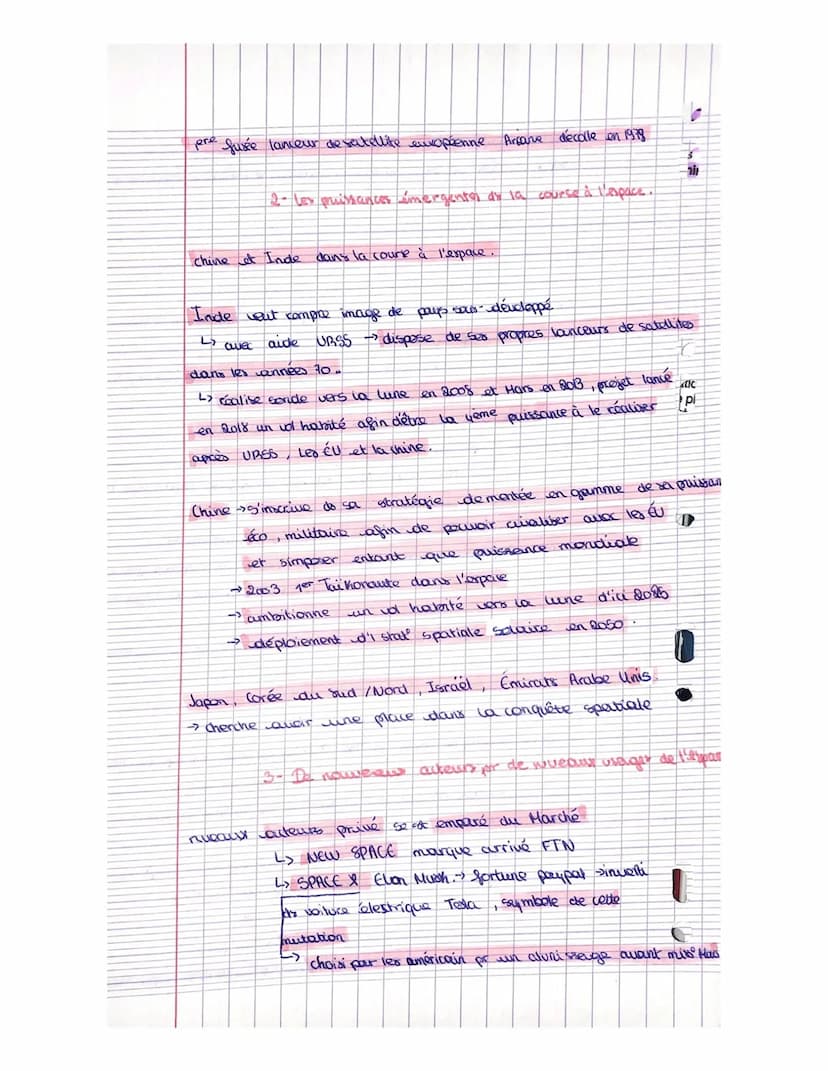 1ere fusée lanceur de satellite européenne Ariane décolle en 1979
2- Les puissances émergentes ds la course à l'espace.
Chine et Inde dans la course à l'espace.
Inde veut rompre image de pays sous-développé
↳ avec aide URSS → dispose de ses propres lanceurs de satellites
dans les années 70.
↳ réalise sonde vers la lune en 2008 et Mars en 2013, projet lancé
en 2018 un vol habité afin d'être la 4ème puissance à le réaliser
après URSS, les ÉU et la chine.
Chine → s'inscrive ds sa stratégie de montée en gamme de sa puissan
éco, militaire afin de pouvoir rivaliser avec les ÉU
et simposer entant que puissance mondiale
→ 2003 1er Taïkonaute dans l'espace
→ ambitionne un vol habité vers la lune d'ici 2025
→ déploiement d'1 stat° spatiale solaire en 2050.
Japon, Corée du Sud / Nord, Israël, Émirats Arabe Unis.
→ cherche avoir une place dans la conquête spatiale
3- De nouveaux acteurs pr de nuveaux usages de l'espac
nuveaux acteurs privé se st emparé du Marché
↳ NEW SPACE marque arrivé FTN
↳ SPACE X Elon Mush → fortune paypal → investi
ds voiture électrique Tesla, symbole de cette
mutation
↳ choisi par les américain pr un alunissage avant miss° Mars